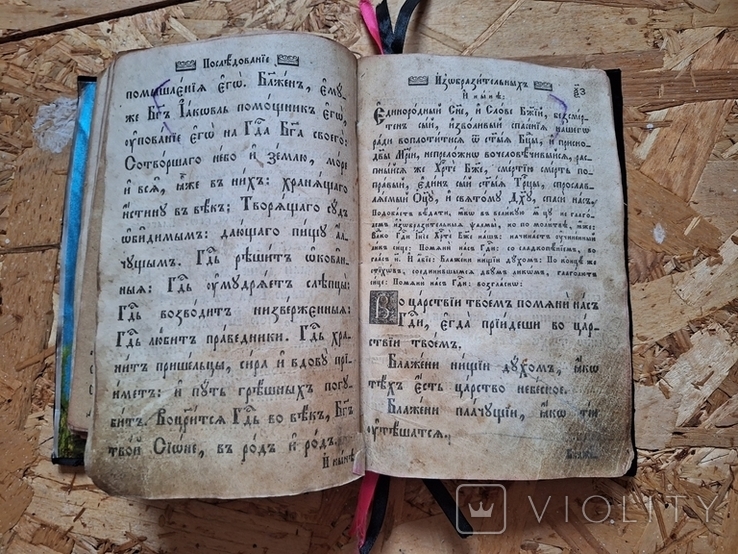 Послѣдованїе
помышле́нїѧ є҆гѡ̀. Блаже́н, є҆мꙋ́
же Бг҃ъ І҆а́кѡвль помо́щникъ є҆гѡ̀,
ᲂу҆пова́нїе є҆гѡ̀ на Гдⷭ҇а Бг҃а своего̀:
Сотво́ршаго не́бо и҆ зе́млю, мо́ре
и҆ всѧ̑, ꙗ҆́же в ни́хъ: Хранѧ́щаго
и҆́стинꙋ въ вѣ́къ; Творѧ́щаго сꙋ́дъ
ѡ҆би́димымъ: даю́щаго пи́щꙋ а҆́л
чꙋщымъ. Гдⷭ҇ь рѣши́тъ ѡ҆ко́ван
ныѧ: Гдⷭ҇ь ᲂу҆мꙋдрѧ́етъ слѣпцы̀:
Гдⷭ҇ь возво́дитъ низве́рженныѧ:
Гдⷭ҇ь лю́битъ пра́ведники. Гдⷭ҇ь хра
ни́тъ пришє́льцы, си́ра и҆ вдовꙋ̀ прї
и́метъ: и҆ пꙋ́ть грѣ́шныхъ погꙋ
би́тъ. Воцр҃и́тсѧ Гдⷭ҇ь во вѣ́къ, Бг҃ъ
тво́й Сїѡ́не, въ ро́дъ и҆ ро́дъ.
И҆ ны́нѣ
И҆зѡбрази́тельныхъ
И҆ ны́нѣ:
Є҆диноро́дный Сн҃е, и҆ Сло́ве Бж҃їй, безсме́р
тенъ сы́й, и҆зво́ливый спасе́нїѧ на́шегѡ
ра́ди воплоти́тисѧ ѿ ст҃ы́ѧ Бцⷣы, и҆ присно
дв҃ы Мр҃і́и, непрело́жнѡ вочеловѣ́чивыйсѧ, рас
пны́йсѧ же Хрⷭ҇тѐ Бж҃е, сме́ртїю сме́рть по
пра́вый, є҆ди́нъ сы́й ст҃ы́ѧ Трⷪ҇цы, спросла́в
лѧемый Ѻ҆ц҃ꙋ̀, и҆ свято́мꙋ Дх҃ꙋ, спасѝ на́съ.
Во ца́рствїи твое́мъ помѧнѝ на́съ
Гдⷭ҇и, є҆гда̀ прїи́деши во ца́р
ствїи твое́мъ.
Блаже́ни ни́щїи дꙋ́хомъ, ꙗ҆́кѡ
тѣ́хъ є҆́сть ца́рство небе́сное.
Блаже́ни пла́чꙋщїи, ꙗ҆́кѡ ті́и
ᲂу҆тѣ́шатсѧ.
VIOLITY